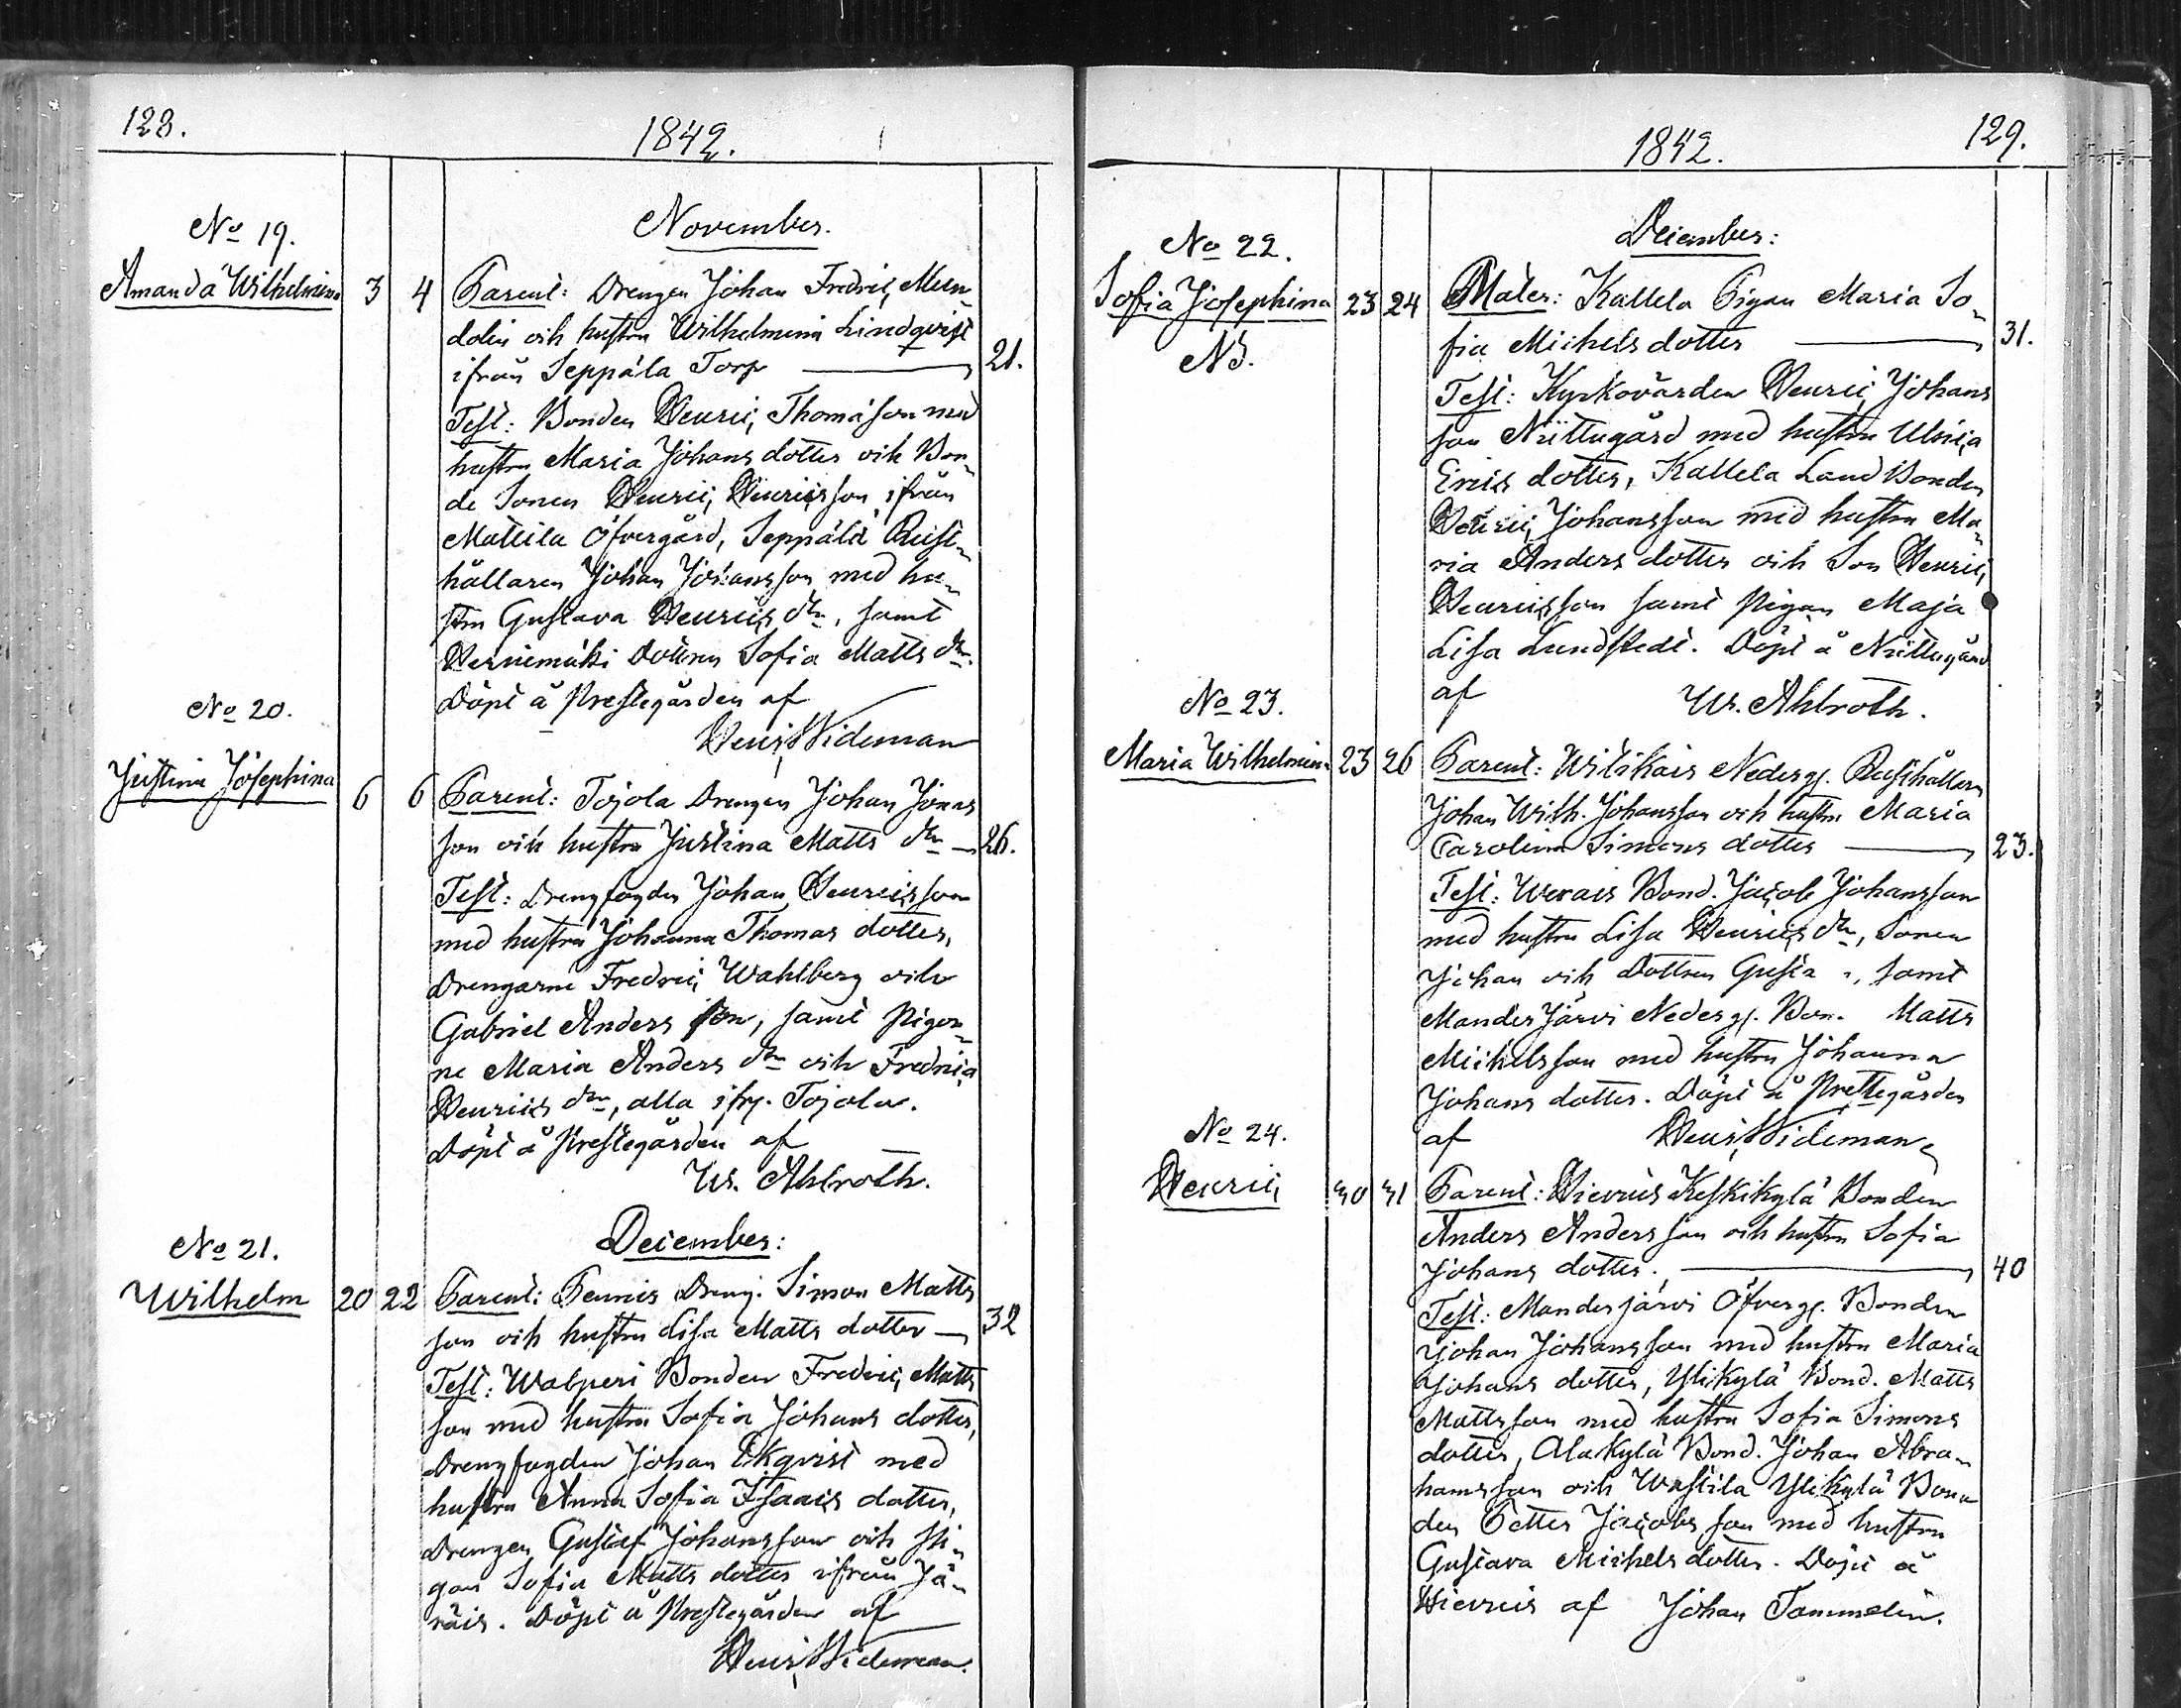 128.
1842.
November.
No 19.
Amanda Wilhelmina 3 4 Parent: Drengen Johan Fredric Mun-
delin och hustru Wilhelmina Lindqvist
ifrån Seppälä Torp — 21.
Test: Bonden Henric Thomasson med
hustru Maria Johans dotter och Bon-
de Sonen Henric Henricsson ifrån
Mattila Öfvergård, Seppälä Rust-
hållaren Johan Johansson med hu-
stru Gustava Henrics dr, samt
Dottren Sofia Matts dr.
Döpt å Prestegården af
Henr. Wideman
No 20.
Justina Josephina 6 6 Parent: Tojola Drengen Johan Jonas
son och hustru Justina Matts dr — 26.
Test: Drengfogden Johan Henricsson
med hustru Johanna Thomas dotter,
Drengarne Fredric Wahlberg och
Gabriel Anders son, samt Pigor-
ne Maria Anders dr och Fredrica
Henrics dr, alla ifr. Tojola.
Döpt å Prestegården af
W. Ahlroth.
December:
No 21.
Wilhelm 20 22 Parent: Pennis Dreng. Simon Matts
son och hustru Lisa Matts dotter — 32
Test: Walperi Bonden Fredric Matts
son med hustru Sofia Johans dotter,
Drengfogden Johan Ekqvist med
hustru Anna Sofia Isaacs dotter,
Drengen Gustaf Johansson och Pi-
gan Sofia Matts dotter ifrån Jä-
räis. Döpt å Prestegården af
Henr. Wideman.
1842.
129.
December:
No 22.
Sofia Josephina 23 24 Mater: Kallela Pigan Maria So-
fia Michels dotter — 31.
NB.
Test: Kyrkovärden Henric Johans
son Niittugård med hustru Ulrica
Erics dotter, Kallela Land Bonden
Henric Johansson med hustru Ma-
ria Anders dotter och Son Henric
Henricsson samt Pigan Maja
Lisa Lundstedt. Döpt å Niittugård
af W. Ahlroth.
No 23.
Maria Wilhelmina 23 26 Parent: Witikais Nederg. Rusthållaren
Johan Wilh. Johansson och hustru Maria
Carolina Simons dotter — 23.
Test: Werais Bond. Jacob Johansson
med hustru Lisa Henrics dr, Sonen
Johan och Dottren Gusta, samt
Manderjärvi Nederg. Bon. Matts
Michelsson med hustru Johanna
Johans dotter. Döpt å Prestegården
af Henr. Wideman
No 24.
Henric 30 31 Parent: Hievuis Keskikylä Bonden
Anders Andersson och hustru Sofia
Johans dotter. — 40
Test: Manderjärvi Öfverg. Bonden
Johan Johansson med hustru Maria
Johans dotter, Ylikylä Bond. Matts
Mattsson med hustru Sofia Simons
dotter, Alakylä Bond. Johan Abra-
hamsson och Wastila Ylikylä Bon-
den Petter Jacobsson med hustru
Gustava Michels dotter. Döpt å
Hievuis af Johan Tammelin.